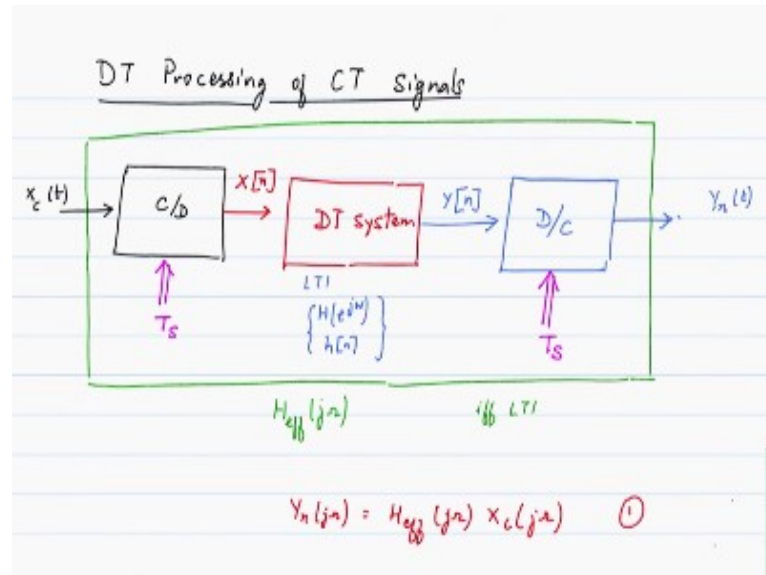 DT Processing of CT Signals
x_c(t) C/D x[n] DT system y[n] D/C y_r(t)
LTI
T_s { H(e^{jω}) T_s
h[n] }
H_eff(jΩ) iff LTI
Y_r(jΩ) = H_eff(jΩ) X_c(jΩ) ①